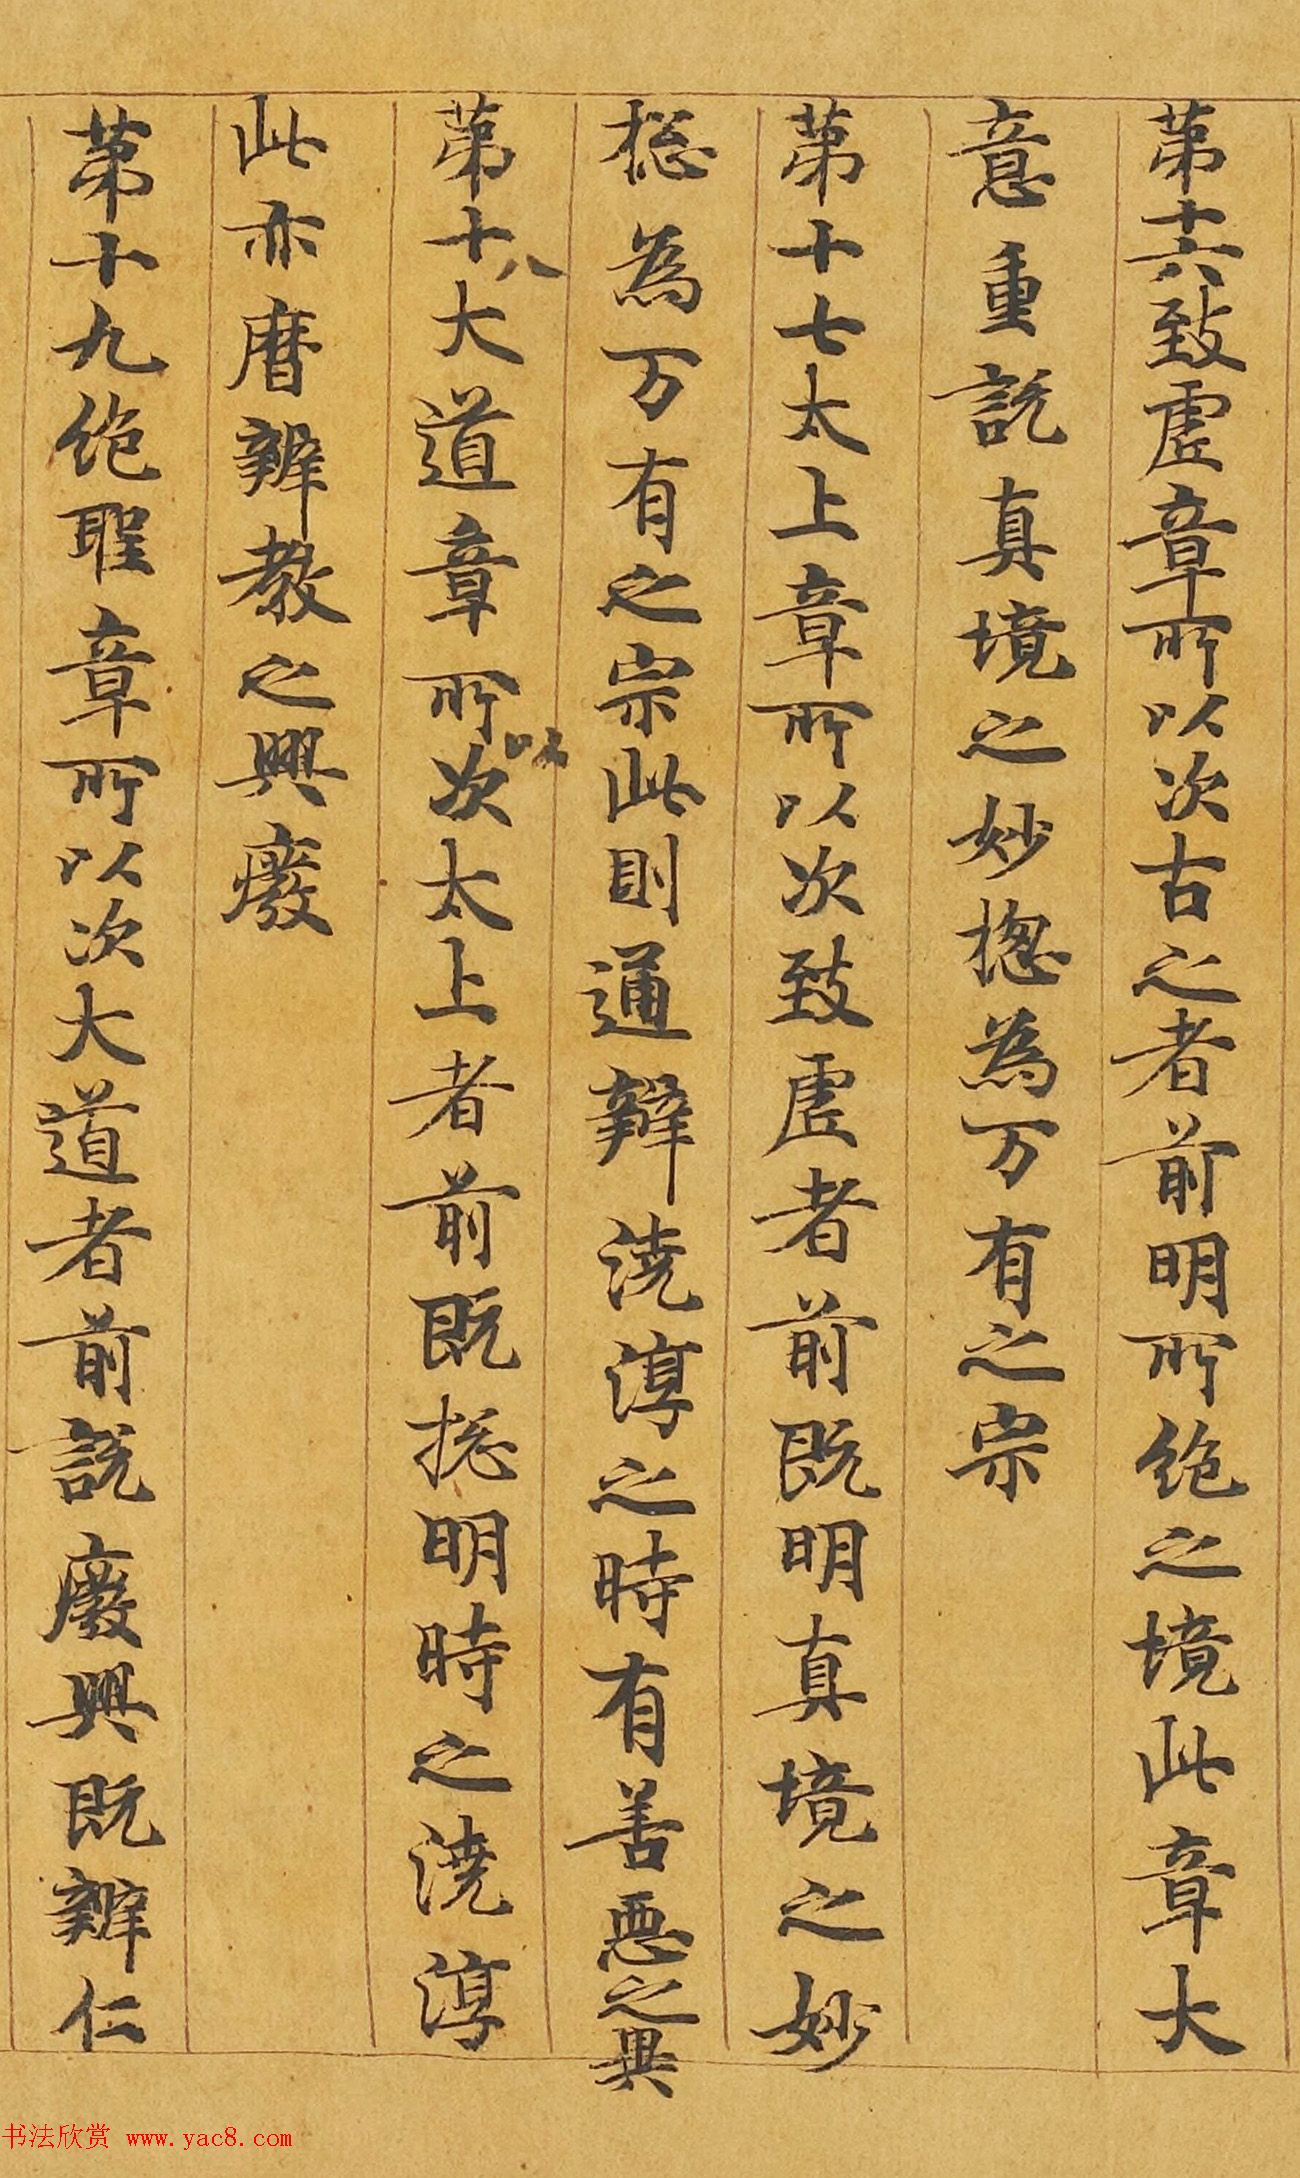 第十六致虚章所以次古之者前明所绝之境此章大
意重説真境之妙揔為万有之宗
第十七太上章所以次致虚者前既明真境之妙
揔為万有之宗此則通辯澆淳之時有善惡之異
第十八大道章所以次太上者前既揔明時之澆淳
此亦曆辨教之興癈
第十九绝聖章所以次大道者前説癈興既辨仁
书法欣赏 www.yac8.com